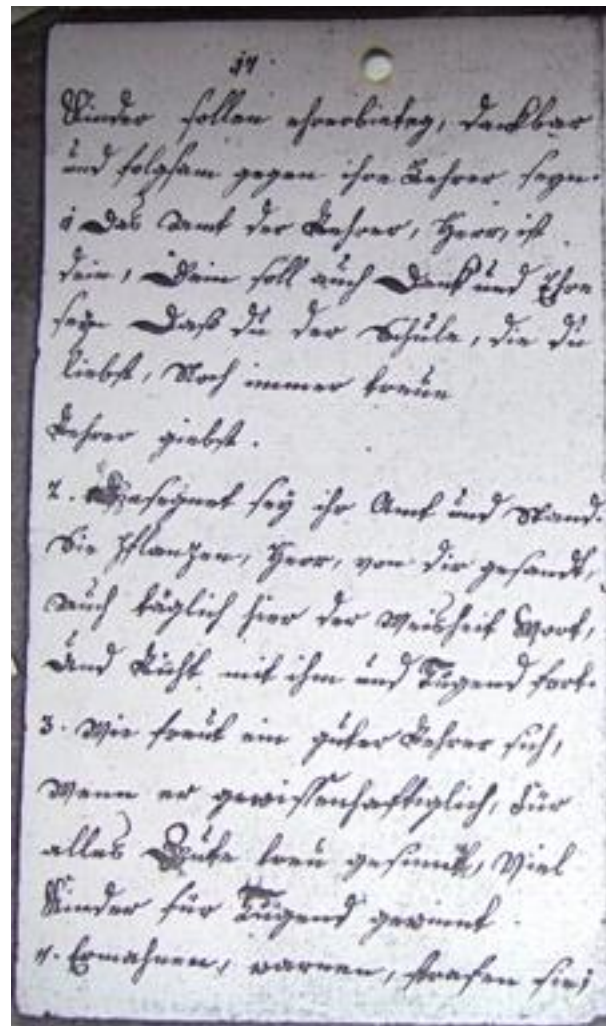 17.
Kinder sollen ehrerbieteg, dankbar
und folgsam gegen ihre Lehrer seyn.
1 Das Amt der Lehrer, Herr, ist
dein, Dein soll auch Dank und Ehre
seyn Daß du der Schule, die du
liebst, Noch immer treue
Lehrer giebst.
2. Gesegnet sey ihr Amt und Stand.
Sie Pflanzen, Herr, von dir gesandt,
Auch täglich hier der Weisheit Wort,
Und Licht mit ihm und Tugend fort.
3. Wie freut ein guter Lehrer sich,
Wenn er gewissenhaftiglich, Für
alles Gute treu gesinnt, Viel
Kinder für Tugend gewinnt
4. Ermahnen, warnen, strafen sie;